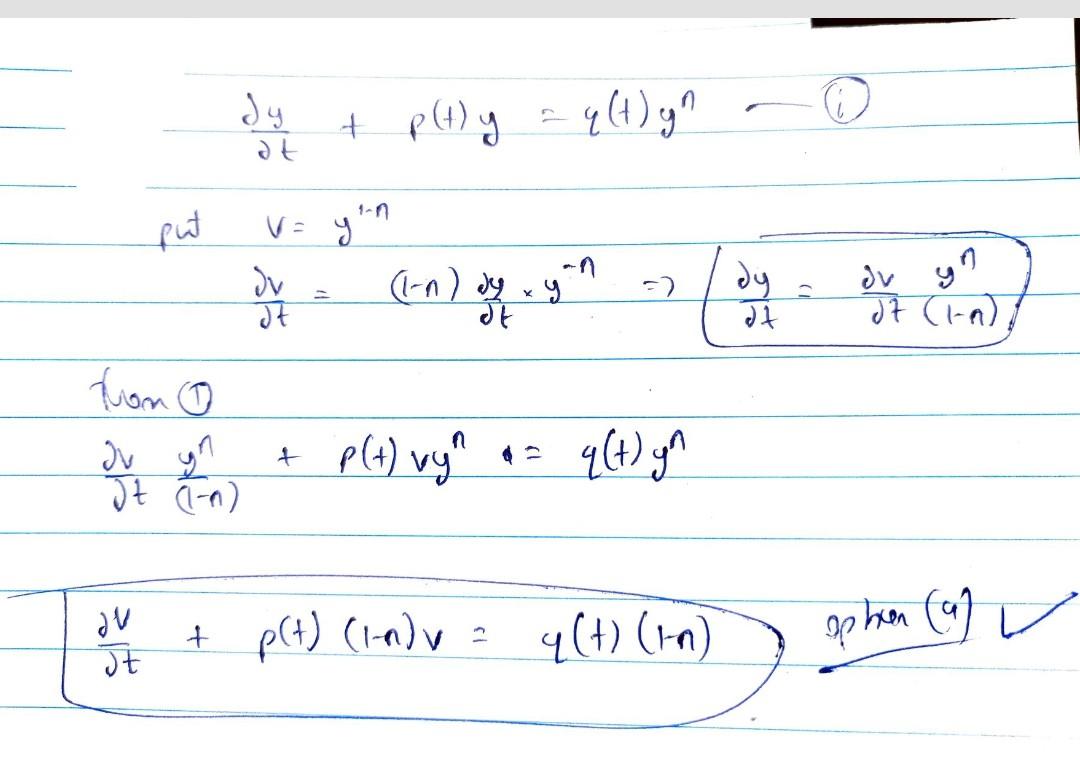 ∂y/∂t + p(t) y = q(t) yⁿ — ①
put v = y¹⁻ⁿ
∂v/∂t = (1-n) ∂y/∂t × y⁻ⁿ => ∂y/∂t = ∂v/∂t yⁿ/(1-n)
from ①
∂v/∂t yⁿ/(1-n) + p(t) vyⁿ = q(t) yⁿ
∂v/∂t + p(t) (1-n) v = q(t) (1-n) option (a) ✓